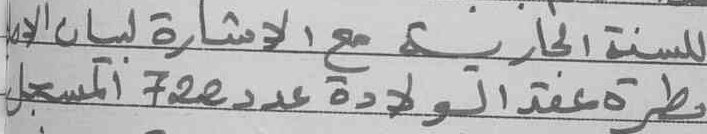 للسنة الجارية مع الاشارة لبيان الا
بطرة عقد الولادة عدد 722 المسجل